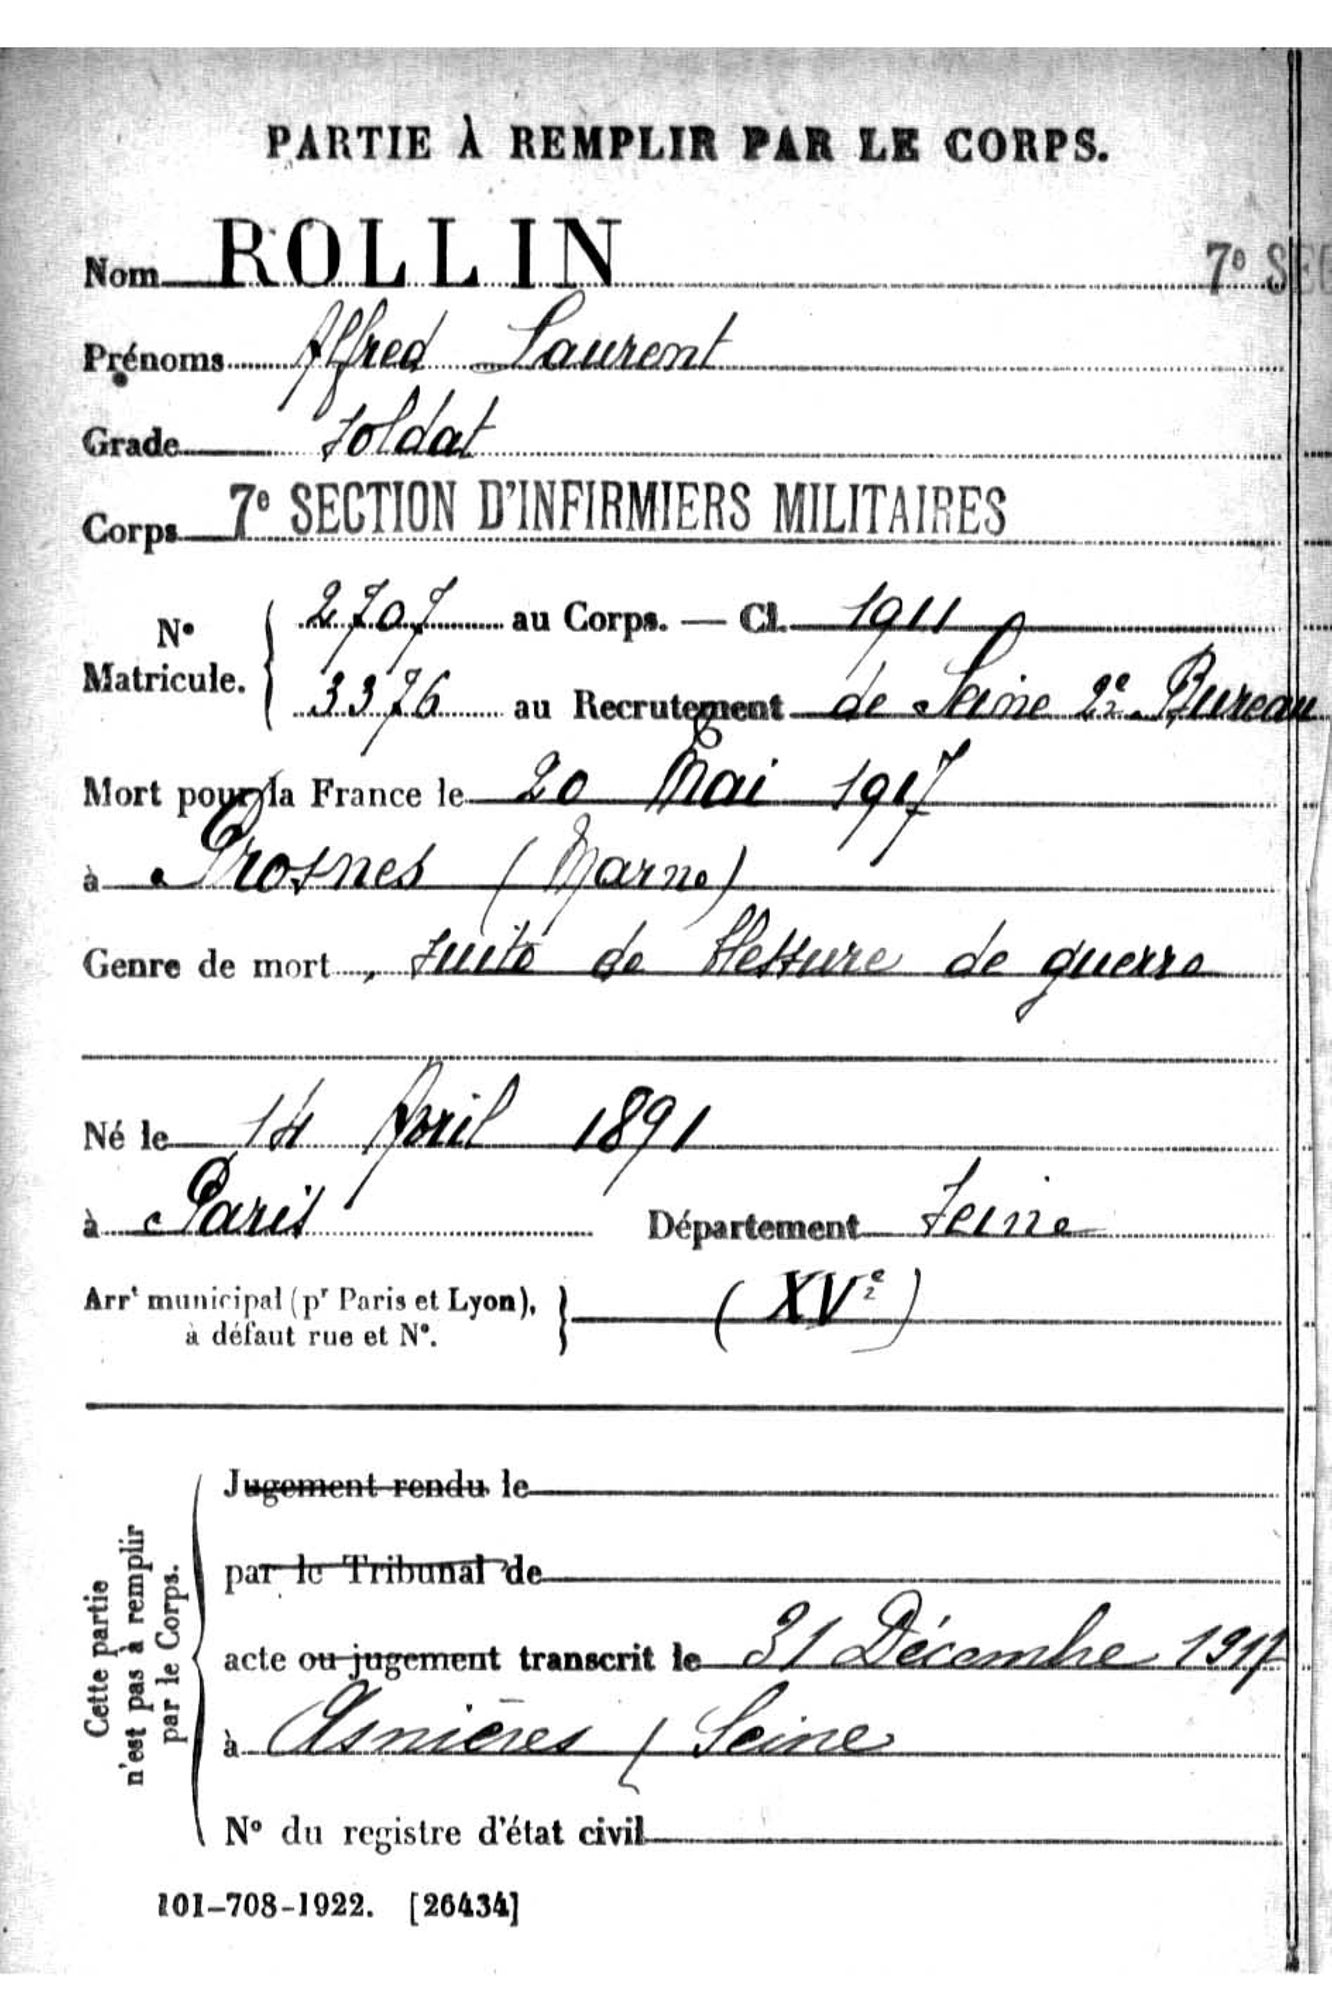 PARTIE À REMPLIR PAR LE CORPS.
Nom ROLLIN
7e SEC
Prénoms Alfred Laurent
Grade soldat
Corps 7e SECTION D'INFIRMIERS MILITAIRES
No Matricule. { 2707 au Corps. — Cl. 1911
3376 au Recrutement de Seine 2e Bureau
Mort pour la France le 20 Mai 1917
à Prosnes (Marne)
Genre de mort suite de blessure de guerre
Né le 14 Avril 1891
à Paris Département Seine
Arrt municipal (pr Paris et Lyon), à défaut rue et No. } (XVe)
Cette partie n'est pas à remplir par le Corps.
Jugement rendu le
par le Tribunal de
acte ou jugement transcrit le 31 Décembre 1917
à Asnières (Seine
No du registre d'état civil
101-708-1922. [26434]